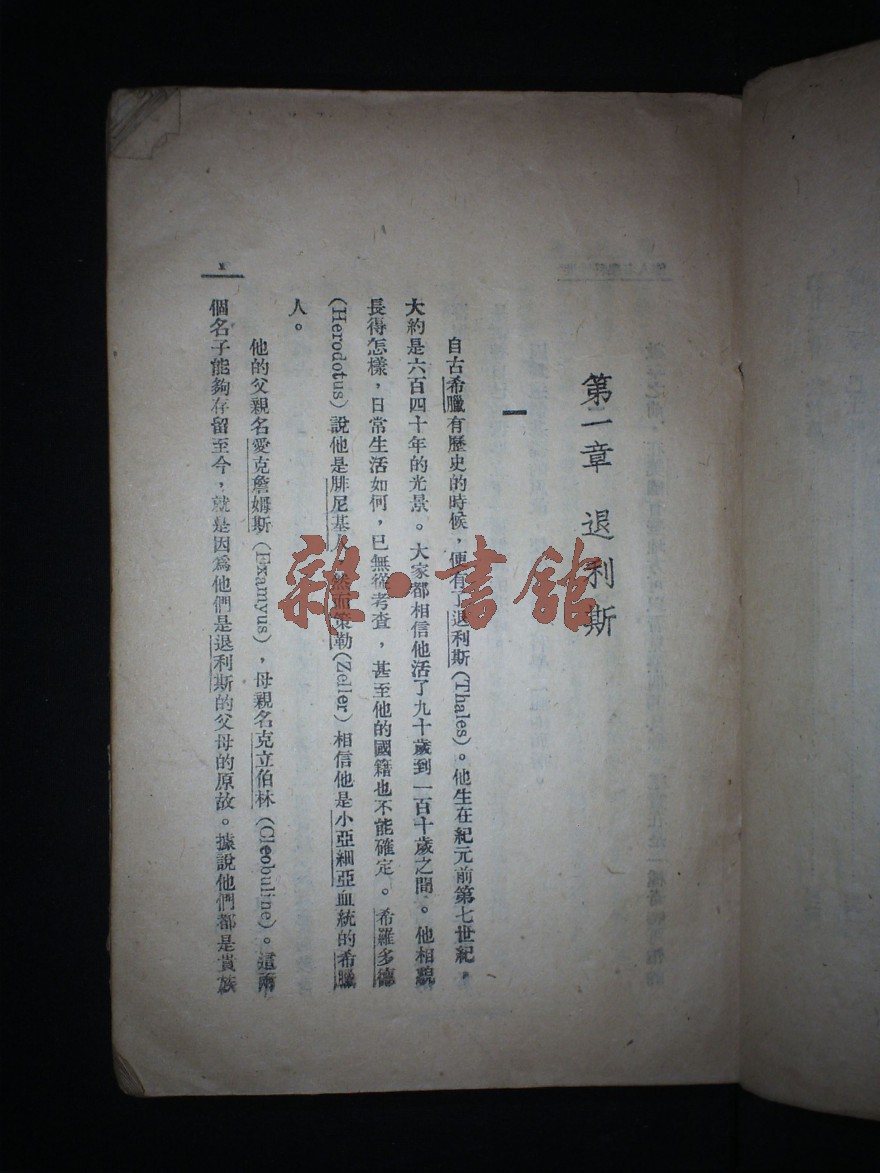 第二章 退利斯
一
自古希臘有歷史的時候，便有了退利斯(Thales)。他生在紀元前第七世紀，
大約是六百四十年的光景。大家都相信他活了九十歲到一百十歲之間。他相貌
長得怎樣，日常生活如何，已無從考查，甚至他的國籍也不能確定。希羅多德
(Herodotus)說他是腓尼基人，然而策勒(Zeller)相信他是小亞細亞血統的希臘
人。
他的父親名愛克詹姆斯(Examyus)，母親名克立伯林(Cleobuline)。這兩
個名子能夠存留至今，就是因爲他們是退利斯的父母的原故。據說他們都是貴族
雜·書館